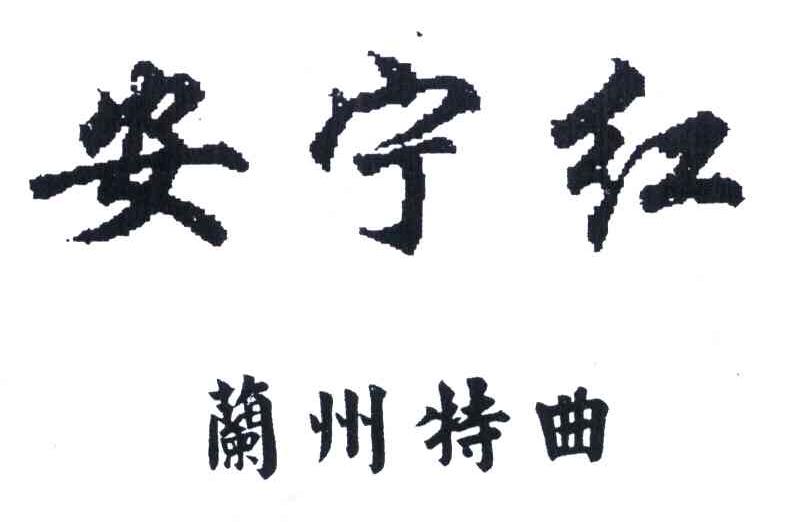 安宁红
蘭州特曲